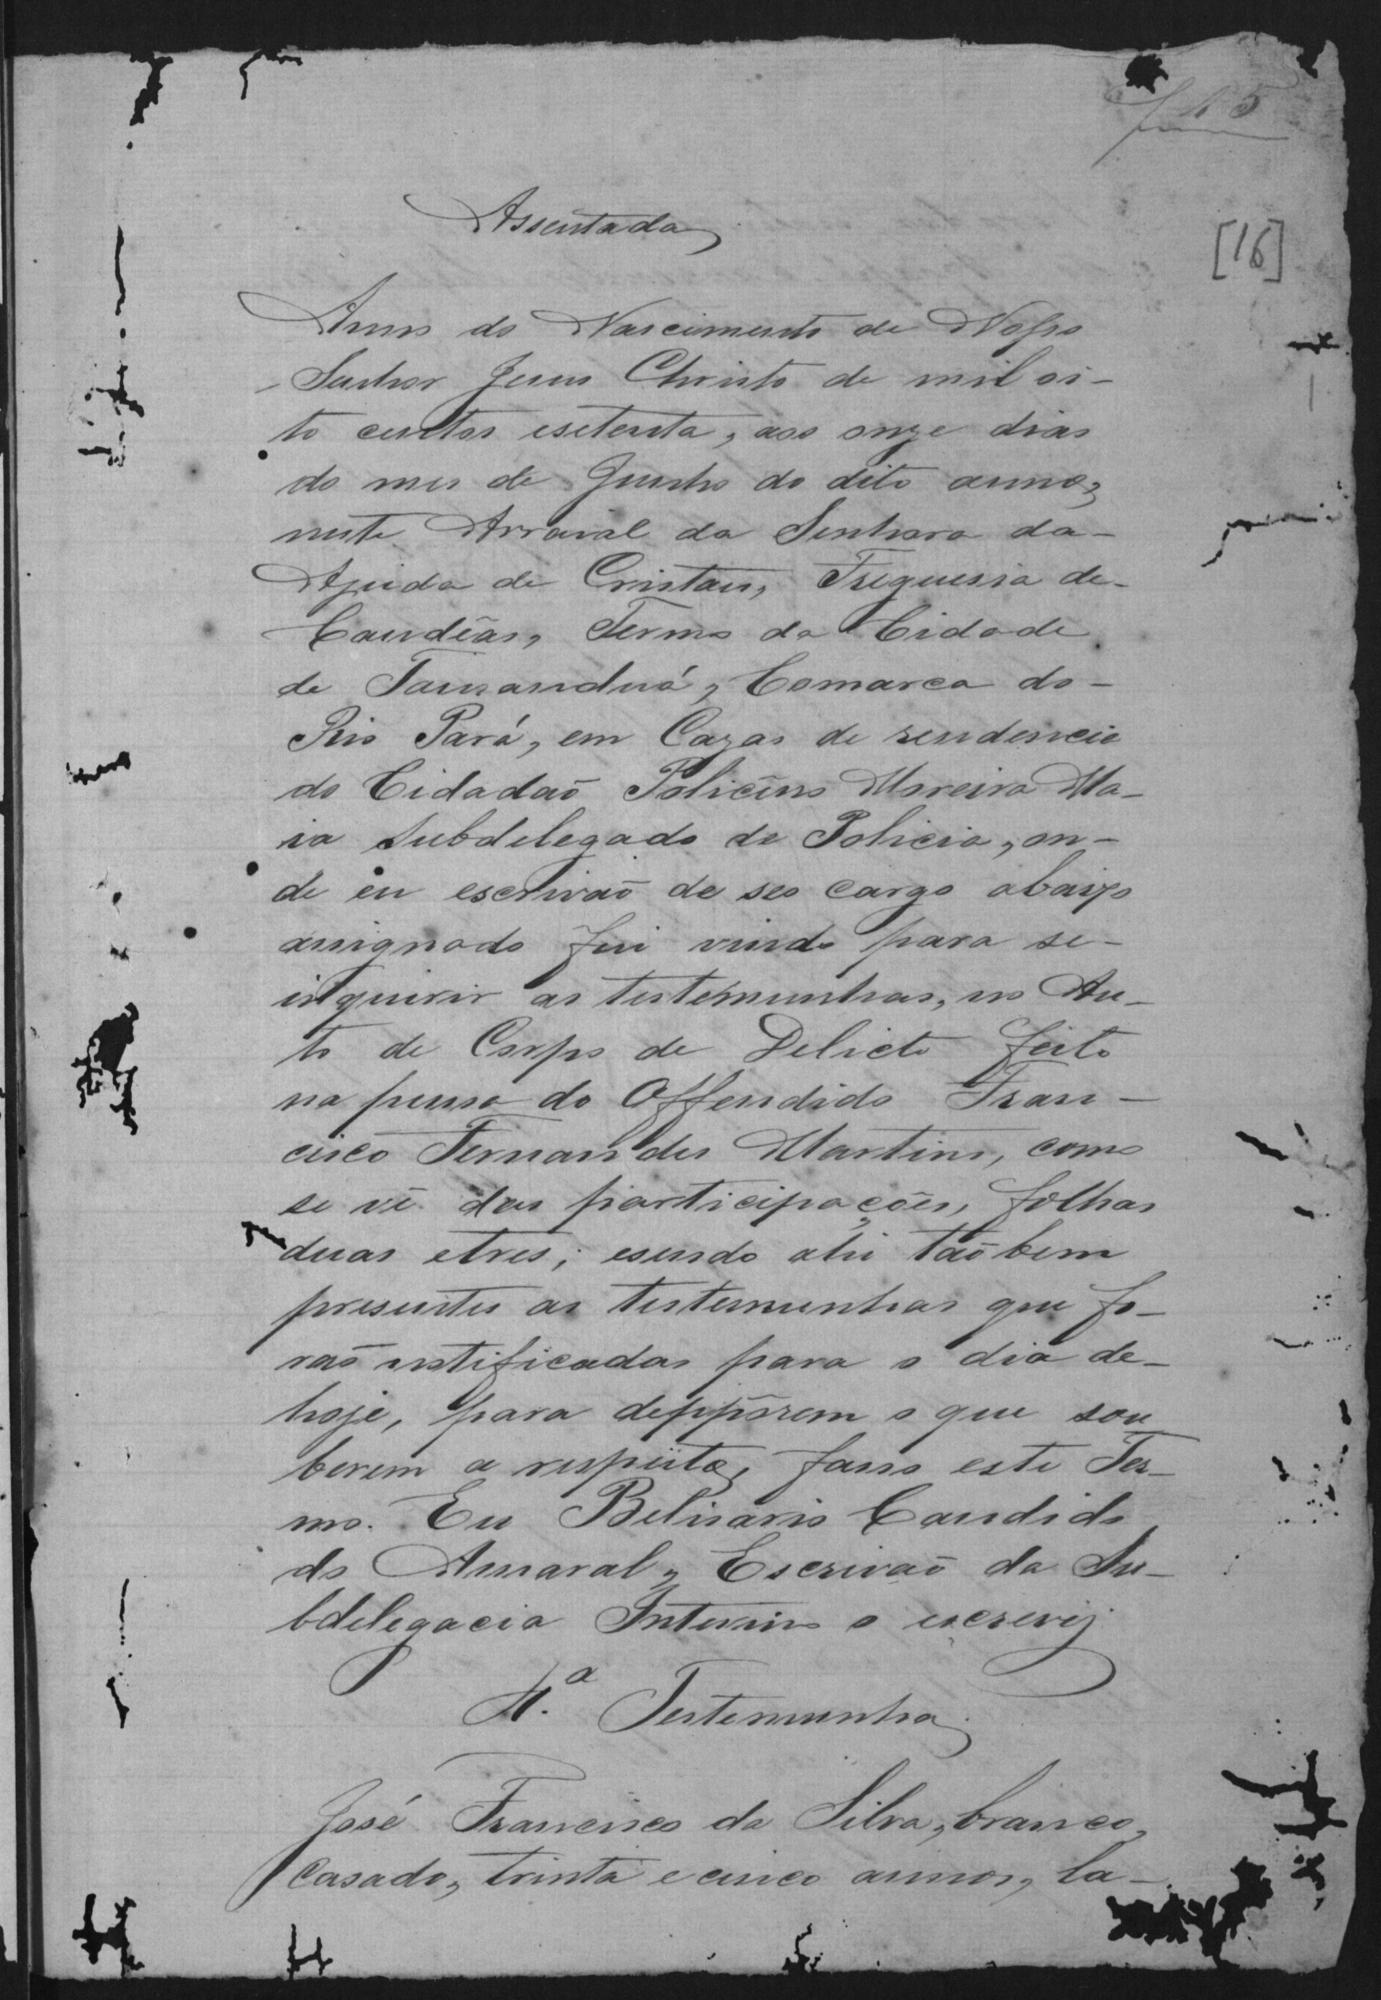 f 15
[16]
Assentada
Anno do Nascimento de Nosso
Senhor Jesus Christo de mil oi-
to centos esetenta, aos onze dias
do mes de Junho do dito anno,
neste Arraial da Senhora da-
Ajuda de Cristais, Freguesia de-
Candêas, Termo da Cidade
de Tamanduá, Comarca do-
Rio Pará, em Cazas de rendencia
do Cidadaõ Policêno Moreira Ma-
ia Subdelegado de Policia, on-
de eu escrivaõ de seo cargo abaixo
assignado fui vindo para se-
inquirir as testemunhas, no Au-
to de Corpo de Delicto feito
na pessoa do Offendido Fran-
cisco Fernandes Martins, como
se vê das participações, folhas
duas etres; esendo ahi taõbem
presentes as testemunhas que fo-
raõ notificadas para o dia de-
hoje, para deppôrem o que sou
berem a respeito, fasso este Ter-
mo. Eu Belisario Candido
do Amaral, Escrivaõ da Su-
bdelegacia Interino o escrevij
1.ª Testemunha
José Francisco da Silva, branco,
Casado, trinta e cinco annos, la-